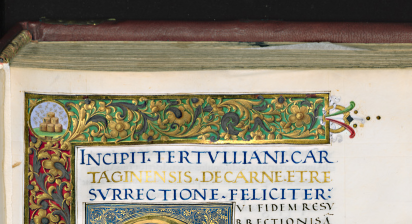 INCIPIT·TERTVLLIANI·CAR
TAGINENSIS·DE CARNE·ET·RE
SVRRECTIONE·FELICITER:
VI FIDEM RESV
RRECTIONISĀ